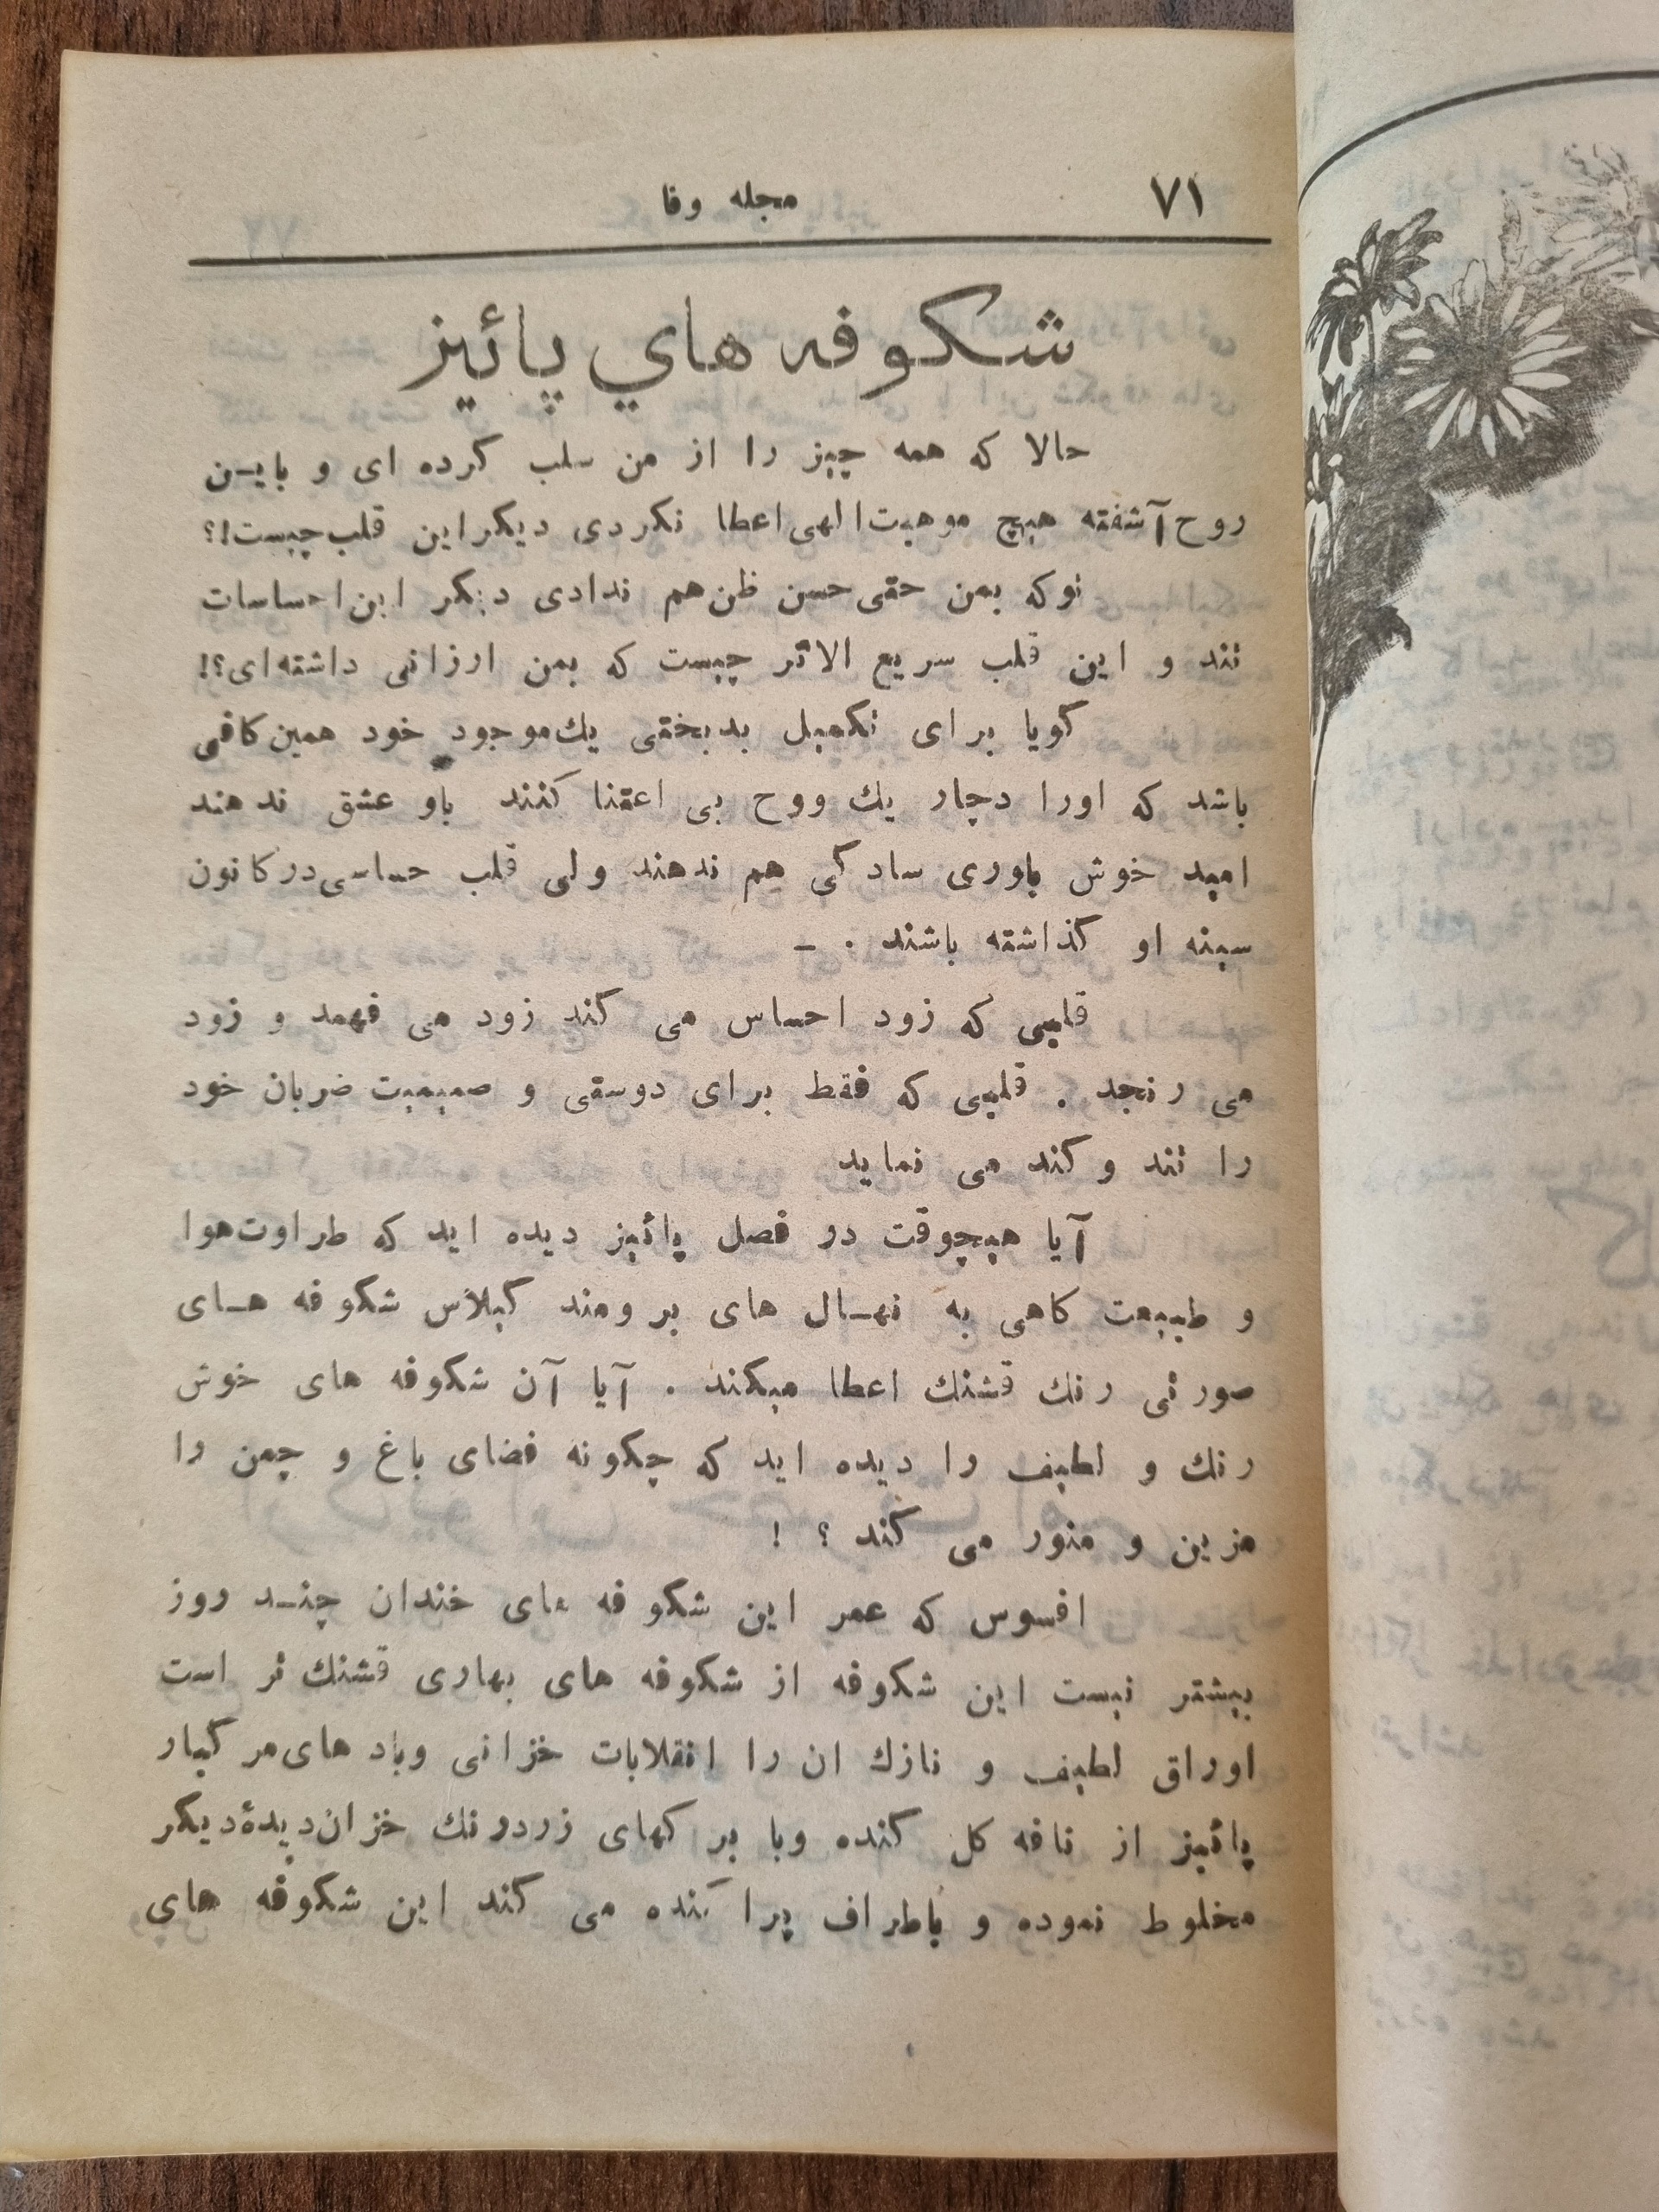 ۷۱
مجله وفا
شکوفه هاي پائیز
حالا که همه چیز را از من سلب کرده ای و بایـن
روح آشفته هیچ موهبت الهی اعطا نکردی دیکر این قلب چیست!؟
توکه بمن حتی حسن ظن هم ندادی دیکر این احساسات
تند و این قلب سریع الاثر چیست که بمن ارزانی داشته ای؟!
کویا برای تکمیل بدبختی یك موجود خود همین کافی
باشد که اورا دچار یك ووح بی اعتنا کنند باو عشق ندهند
امید خوش باوری سادکی هم ندهند ولی قلب حساسی در کانون
سینه او کذاشته باشند . ـ
قلبی که زود احساس می کند زود می فهمد و زود
می رنجد . قلبی که فقط برای دوستی و صمیمیت ضربان خود
را تند و کند می نماید
آیا هیچوقت در فصل پائیز دیده اید که طراوت هوا
و طبیعت کاهی به نهـال های برومند کیلاس شکوفه هـای
صورتی رنك قشنك اعطا میکند . آیا آن شکوفه های خوش
رنك و لطیف را دیده اید که چکونه فضای باغ و چمن را
مزین و منور می کند ؟ !
افسوس که عمر این شکوفه های خندان چنـد روز
بیشتر نیست این شکوفه از شکوفه های بهاری قشنك تر است
اوراق لطیف و نازك ان را انقلابات خزانی وباد های مرکبار
پائیز از نافه کل کنده وبا برکهای زردرنك خزان دیدهٔ دیکر
مخلوط نموده و باطراف پراکنده می کند این شکوفه های